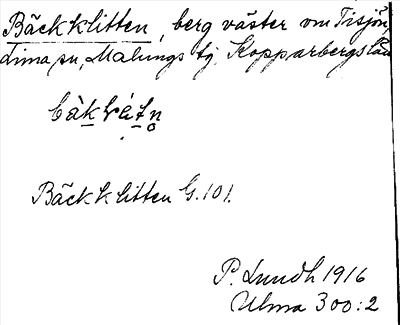 Bäckklitten, berg väster om Tisjön,
Lima sn, Malungs tg, Kopparbergs län
Bäckklitten G.101.
P. Lundh 1916
Ulma 300:2